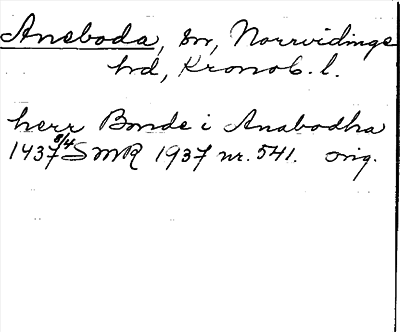 Aneboda, sn, Norrvidinge
hd, Kronob. l.
herr Bonde i Anabodha
1437 8/4 SMR 1937 nr. 541. orig.